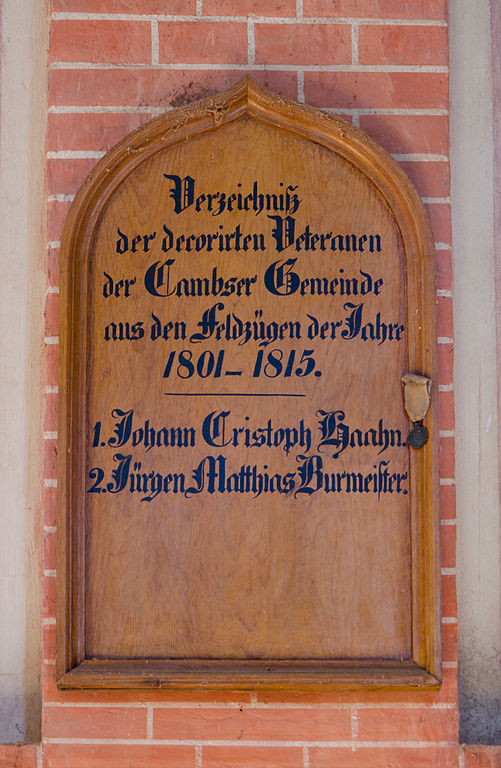 Verzeichniß
der decorirten Veteranen
der Cambser Gemeinde
aus den Feldzügen der Jahre
1801–1815.
1. Johann Cristoph Haahn.
2. Jürgen Matthias Burmeister.